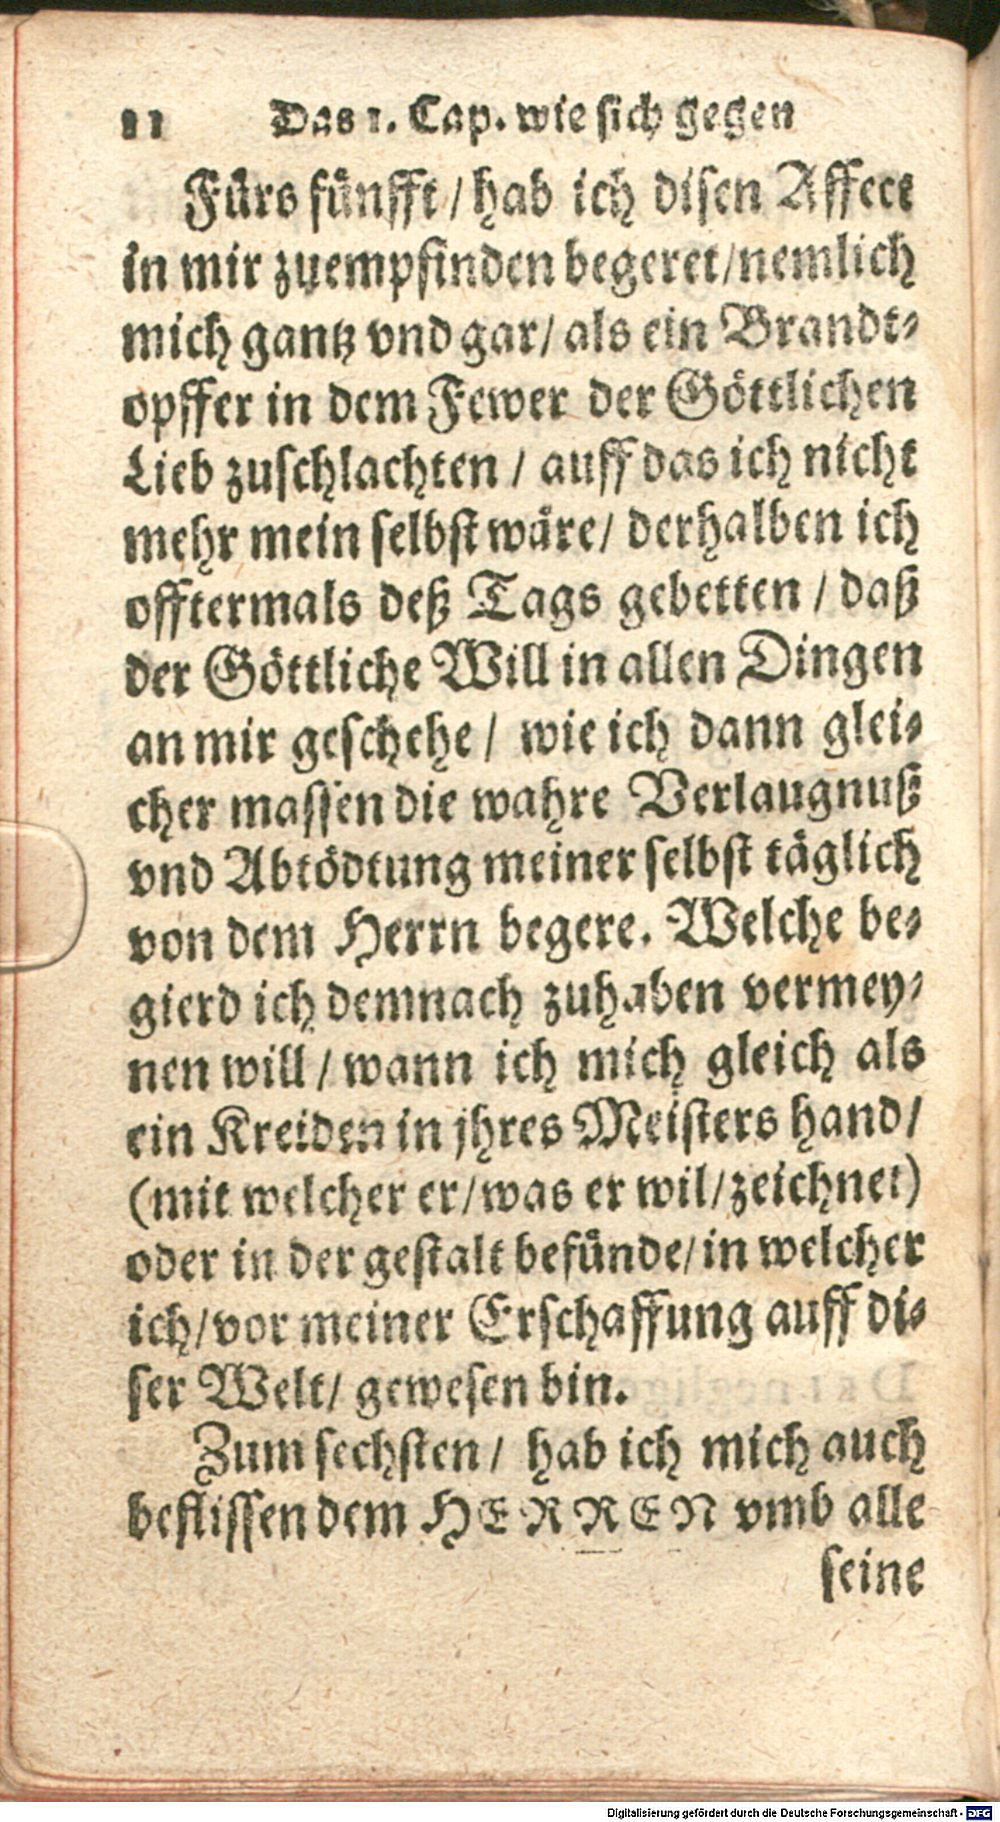 11 Das 1. Cap. wie sich gegen
Fürs fünfft / hab ich disen Affect
in mir zuempfinden begeret/nemlich
mich gantz vnd gar/ als ein Brandt-
opffer in dem Fewer der Göttlichen
Lieb zuschlachten / auff das ich nicht
mehr mein selbst wäre/ derhalben ich
offtermals deß Tags gebetten / daß
der Göttliche Will in allen Dingen
an mir geschehe / wie ich dann glei-
cher massen die wahre Verlaugnuß
vnd Abtödtung meiner selbst täglich
von dem Herrn begere. Welche be-
gierd ich demnach zuhaben vermey-
nen will / wann ich mich gleich als
ein Kreiden in jhres Meisters hand/
(mit welcher er/was er wil/zeichnet)
oder in der gestalt befünde/in welcher
ich/vor meiner Erschaffung auff di-
ser Welt/ gewesen bin.
Zum sechsten / hab ich mich auch
beflissen dem HERREN vmb alle
seine
Digitalisierung gefördert durch die Deutsche Forschungsgemeinschaft - DFG